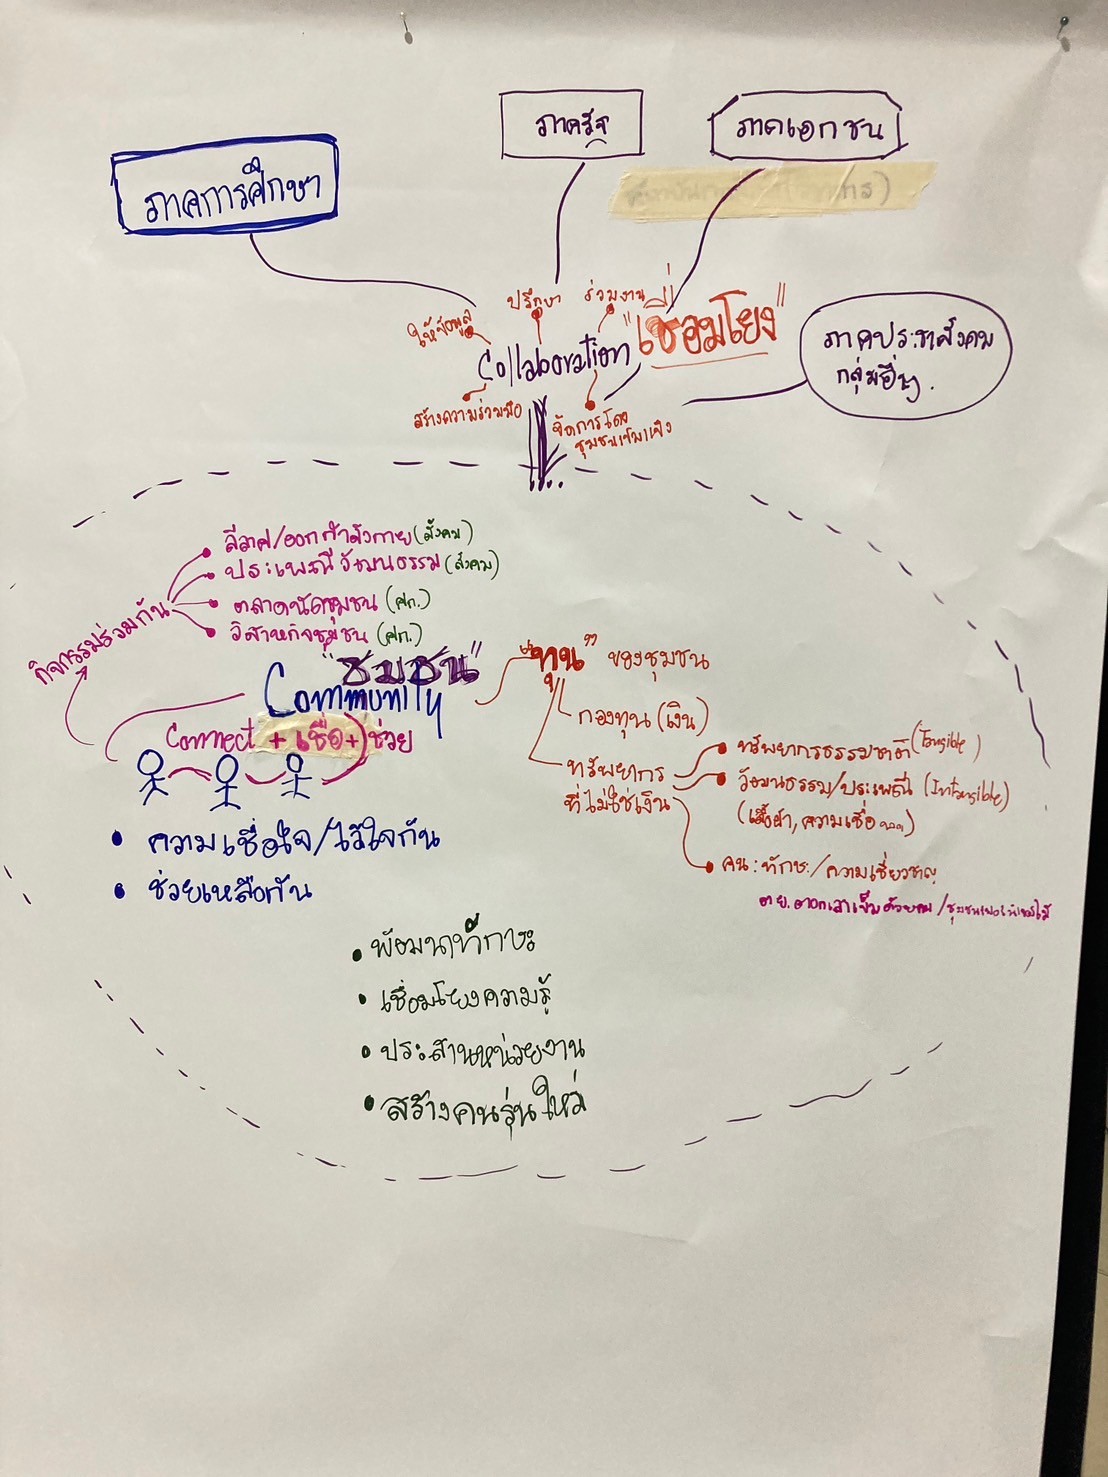 ภาครัฐ
ภาคเอกชน
ภาคการศึกษา
ปรึกษา
ร่วมงาน
ให้ข้อมูล
"เชื่อมโยง"
Collaboration
ภาคประชาสังคม
กลุ่มอื่นๆ.
สร้างความร่วมมือ
จัดการโดย
ชุมชน
กิจกรรมร่วมกัน
ลีลาศ/ออกกำลังกาย (สังคม)
ประเพณี วัฒนธรรม (สังคม)
ตลาดนัดชุมชน (ศก.)
วิสาหกิจชุมชน (ศก.)
"ชุมชน"
Community
Connect + เชื่อ + ช่วย
"ทุน" ของชุมชน
กองทุน (เงิน)
ทรัพยากร
ที่ไม่ใช่เงิน
ทรัพยากรธรรมชาติ (Tangible)
วัฒนธรรม/ประเพณี (Intangible)
(เสื้อผ้า, ความเชื่อ
คน : ทักษะ/ความเชี่ยวชาญ
• ความเชื่อใจ/ไว้ใจกัน
• ช่วยเหลือกัน
• พัฒนาทักษะ
• เชื่อมโยงความรู้
• ประสานหน่วยงาน
• สร้างคนรุ่นใหม่